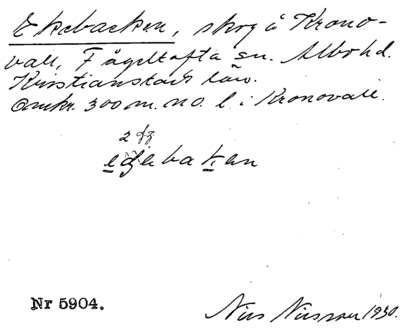 Ekebacken, skog å Krono-
vall, Fågeltofta sn. Albo hd.
Kristianstads län.
Omkr. 300 m. NO. l. i Kronovall.
ba kan
Nr 5904.
Nils Nilsson 1930.